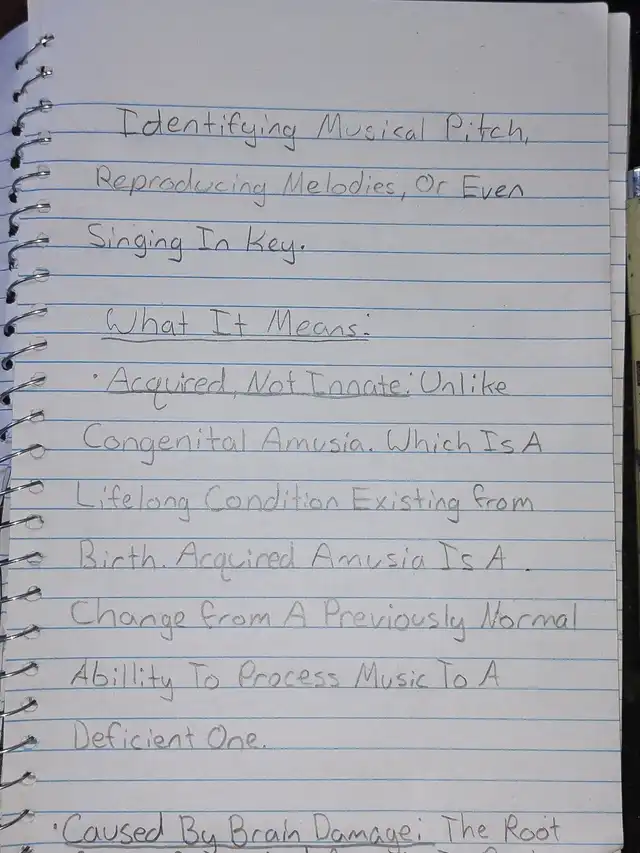 Identifying Musical Pitch,
Reproducing Melodies, Or Even
Singing In Key.
What It Means:
· Acquired, Not Innate: Unlike
Congenital Amusia. Which Is A
Lifelong Condition Existing from
Birth. Acquired Amusia Is A
Change from A Previously Normal
Abillity To Process Music To A
Deficient One.
· Caused By Brain Damage: The Root